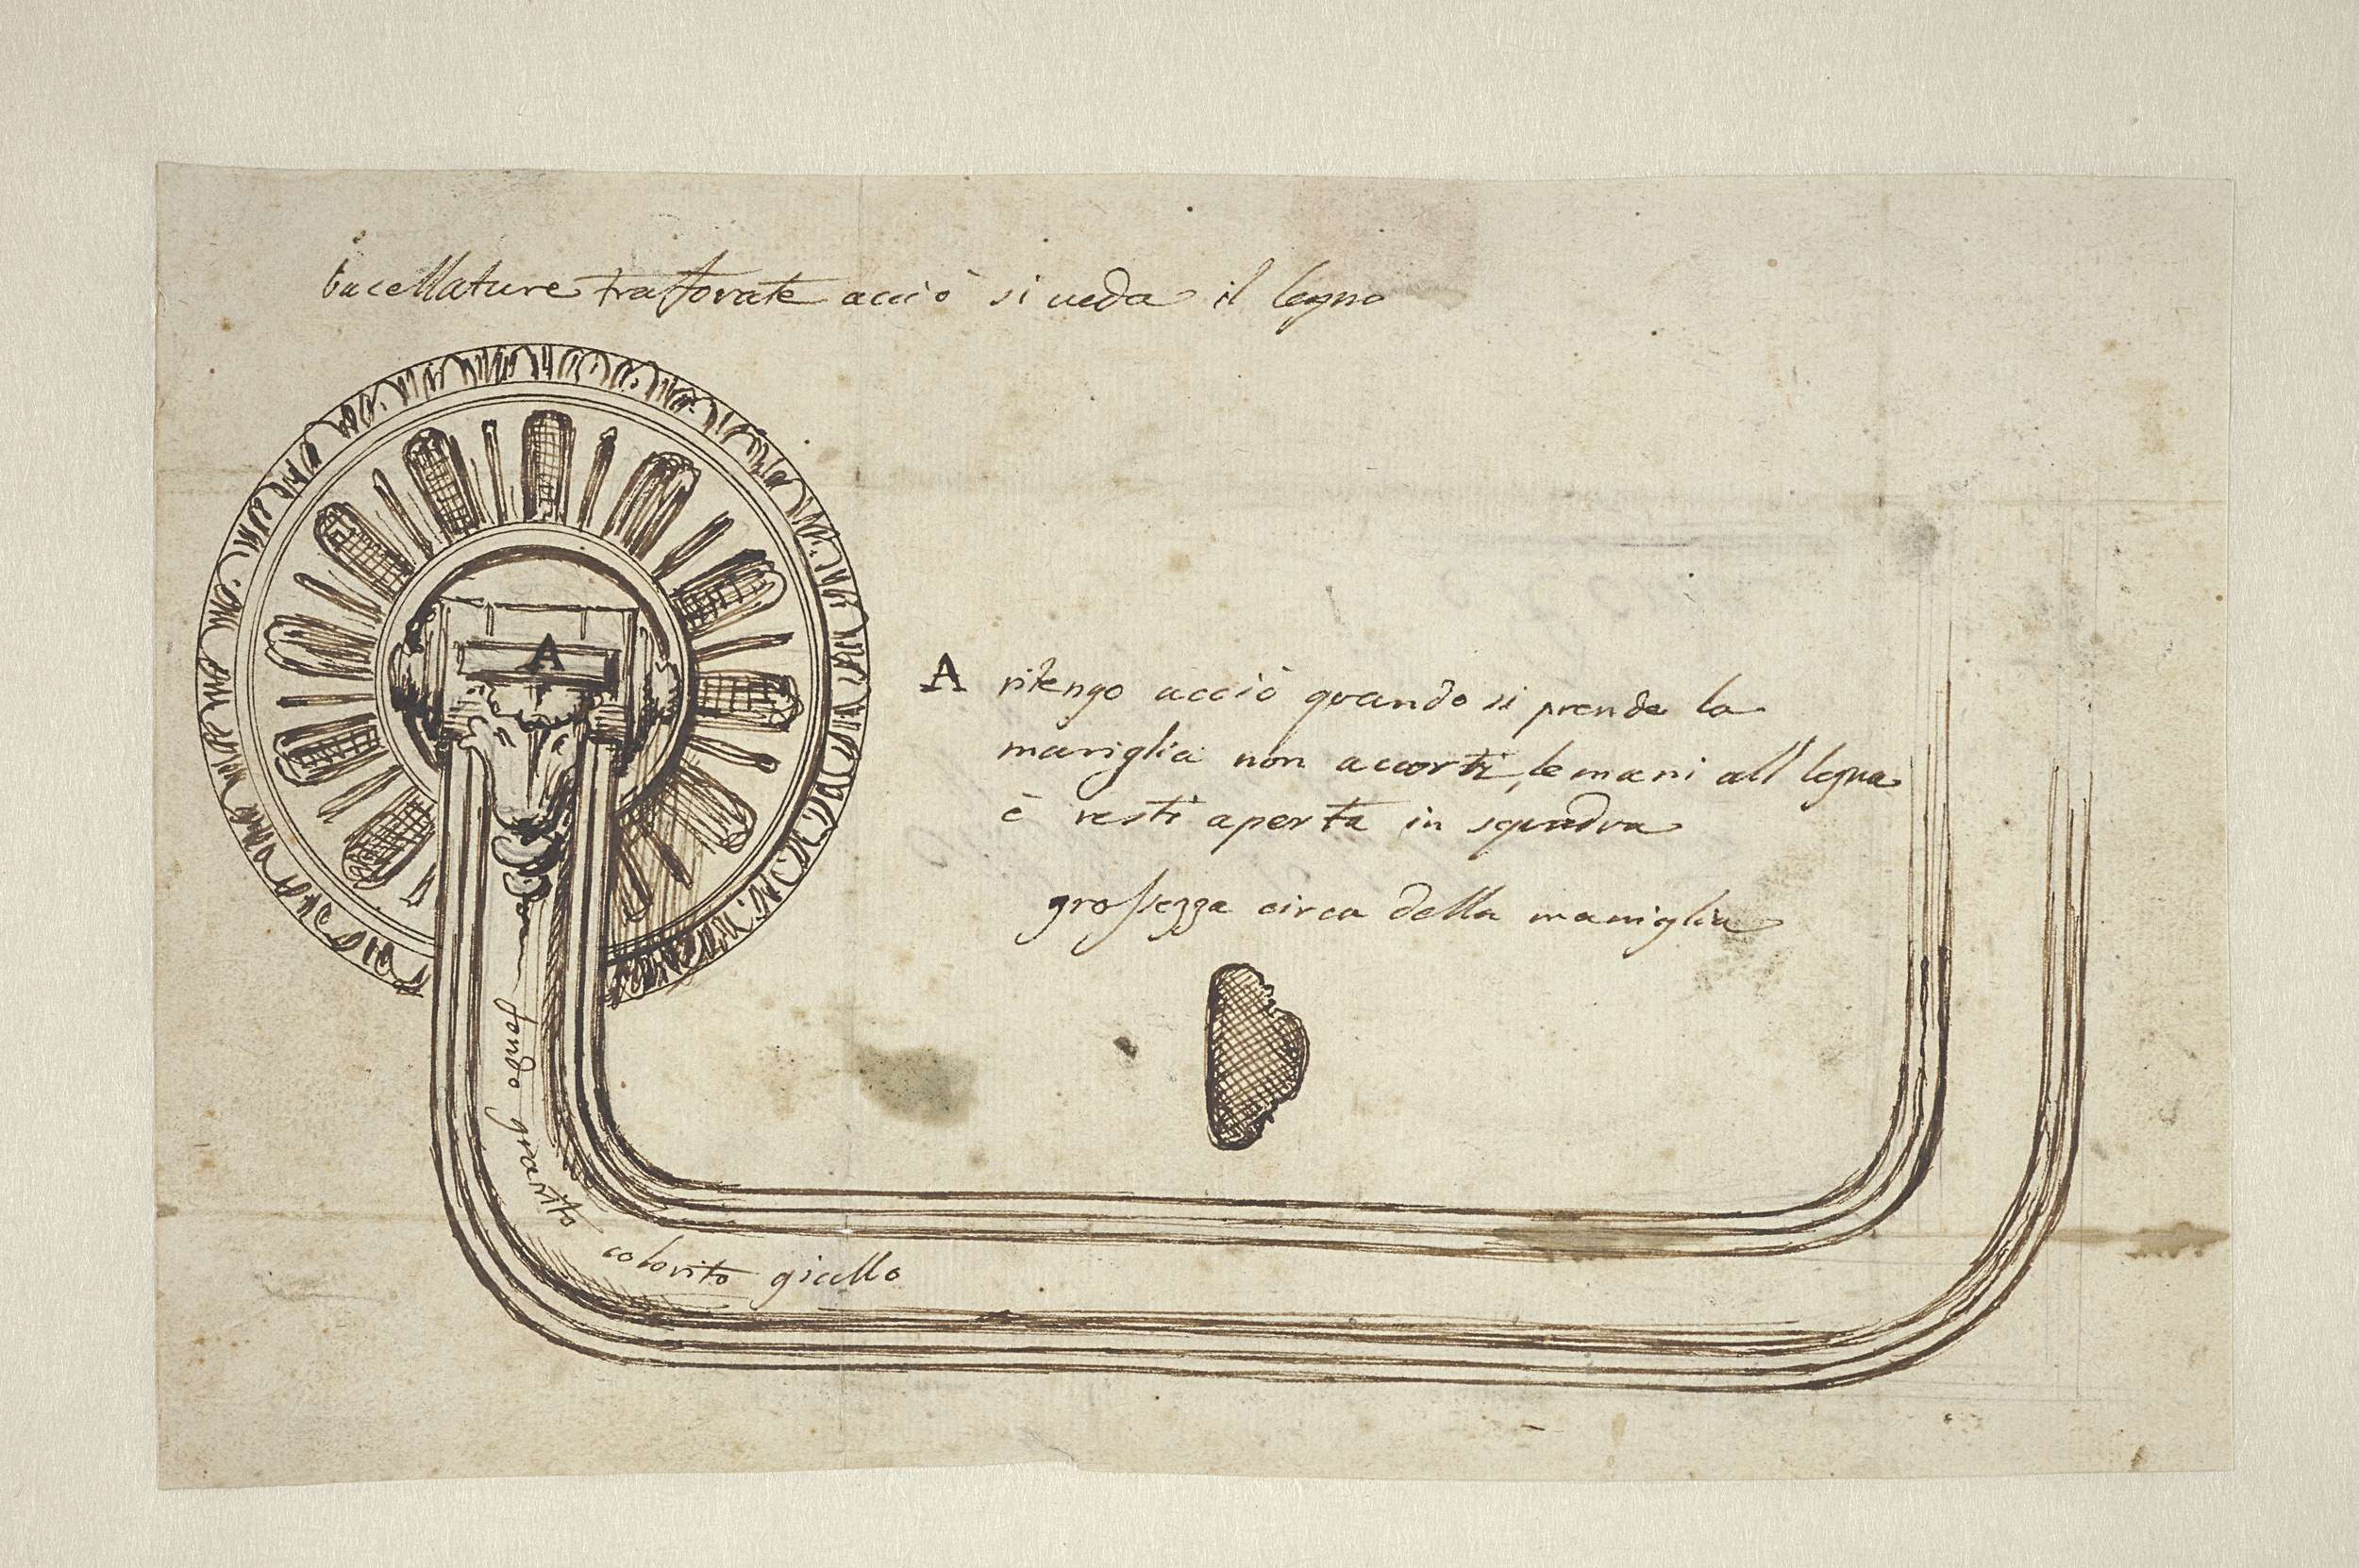 bacellature traforate acciò si ueda il legno
A
A ritengo acciò quando si prende la
maniglia non accorti le mani all legno
è resti aperta in squadra
grossezza circa della maniglia
fondo granito colorito giallo